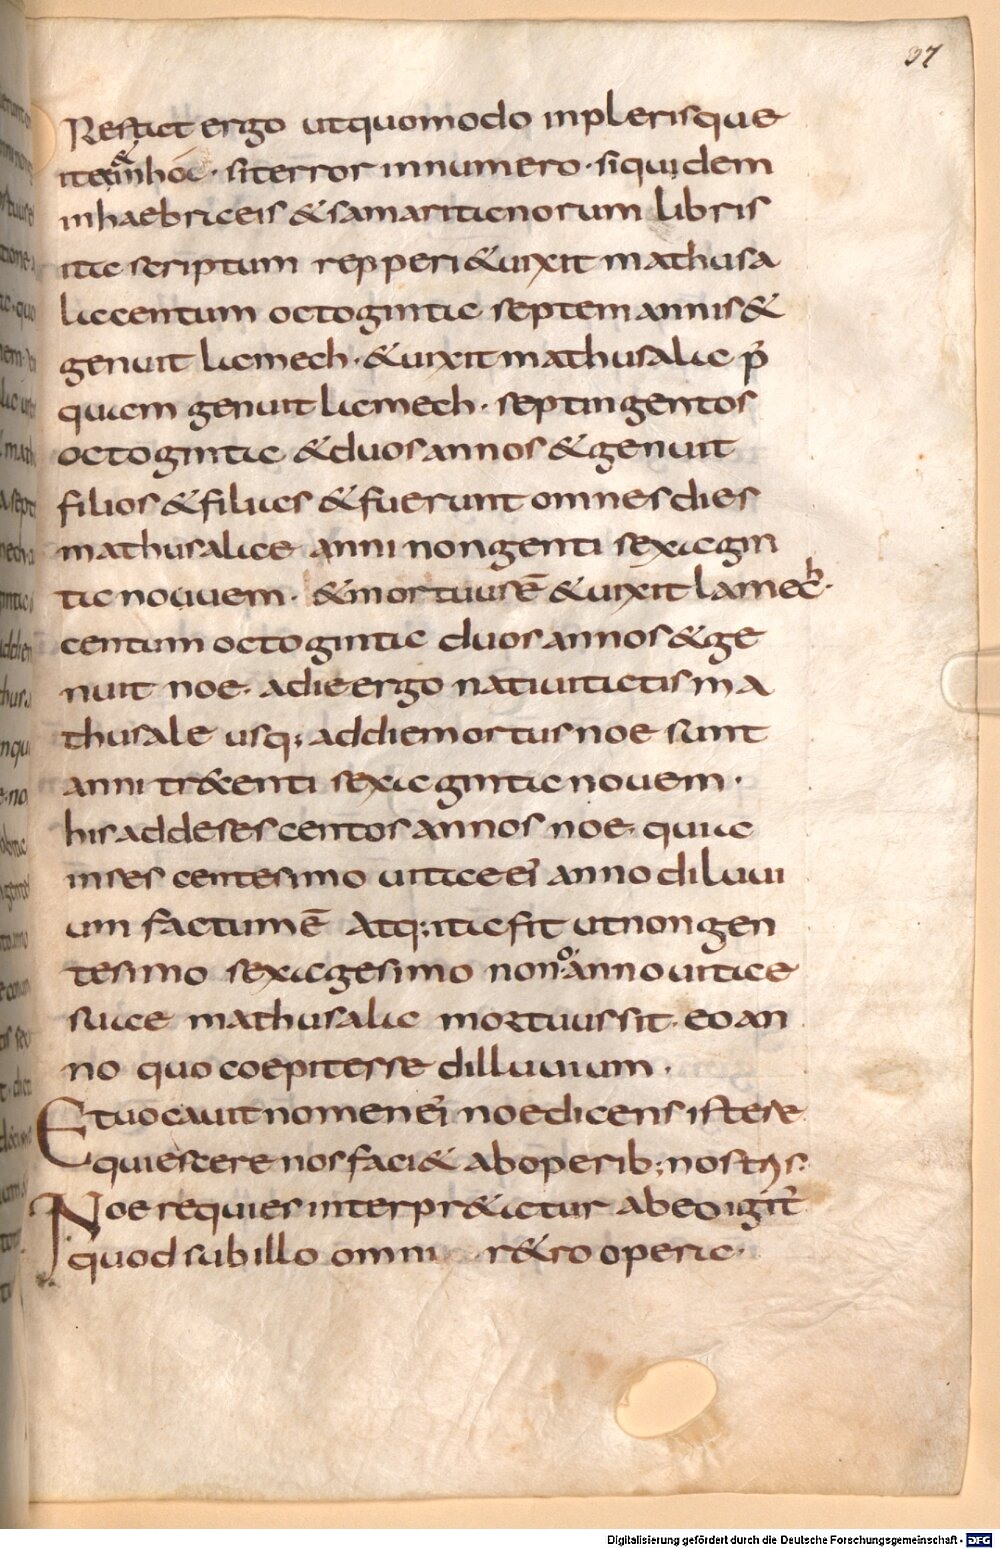 97
Restat ergo utquomodo inplerisque
ita & inhoc · siterror innumero · siquidem
inhaebraeis & samaritanorum libris
ita scriptum repperi & uixit mathusa
la centum octoginta septem annis &
genuit lamech · & uixit mathusala p̄
quam genuit lamech · septingentos
octoginta & duos annos & genuit
filios & filias & fuerunt omnes dies
mathusalae anni nongenti sexagin
ta nouuem · & mortuus ē & uixit lamech ·
centum octoginta duos annos & ge
nuit noe · adie ergo natiuitatis ma
thusale usq; addiem ortus noe sunt
anni tr&centi sexaginta nouem ·
his adde sescentos annos noe · quia
insescentesimo uitae ei' anno diluui
um factum ē Atq; ita fit utnongen
tesimo sexagesimo nono anno uitae
suae mathusala mortuus sit · eo an
no quo coepit esse dilluuium ·
Et uocauit nomen ei' noe dicens iste re
quiescere nos faci& ab operib; nostris ·
Noe requies interpr&atur ab eo igit̄
quod sub illo omnia r&ro opera ·
Digitalisierung gefördert durch die Deutsche Forschungsgemeinschaft - DFG